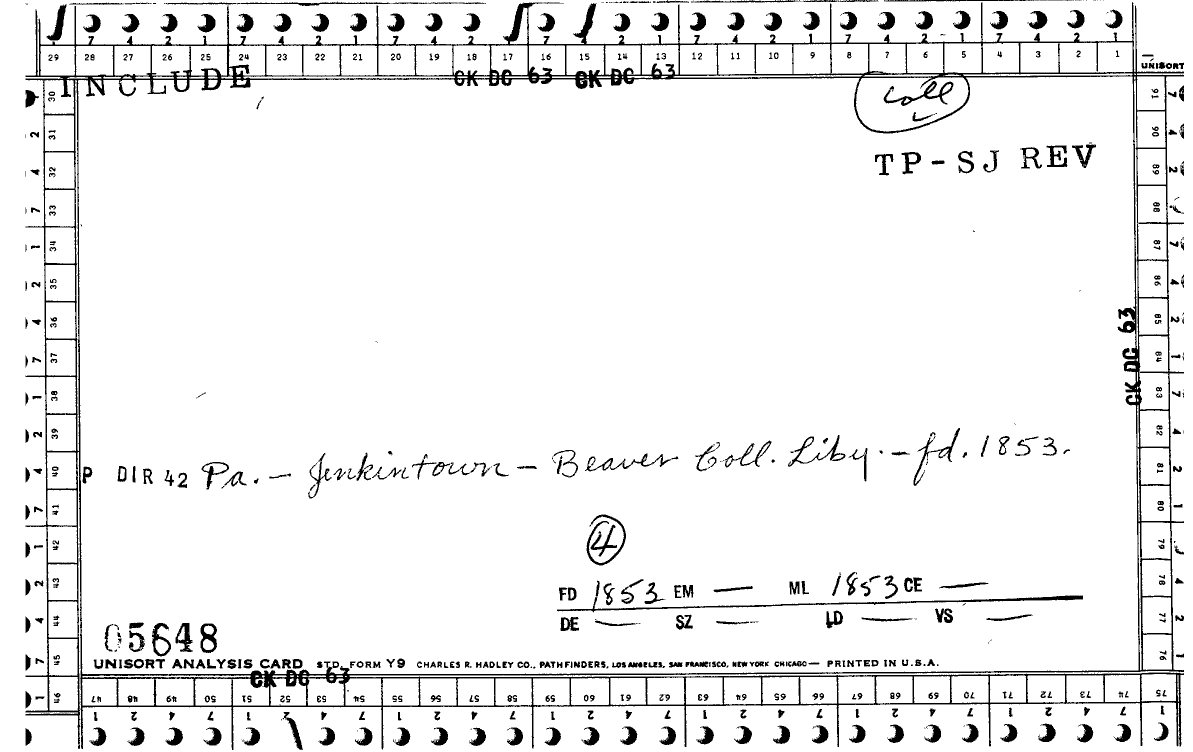 7 4 2 1 7 4 2 1 7 4 2 1 7 4 2 1 7 4 2 1 7 4 2 1
29 28 27 26 25 24 23 22 21 20 19 18 17 16 15 14 13 12 11 10 9 8 7 6 5 4 3 2 1
UNISORT
INCLUDE CK DC 63 CK DC 63
Coll
TP-SJ REV
CK DC 63
P DIR 42 Pa. — Jenkintown — Beaver Coll. Liby. — fd. 1853.
4
FD 1853 EM — ML 1853 CE —
DE — SZ — LD — VS —
05648
UNISORT ANALYSIS CARD STD. FORM Y9 CHARLES R. HADLEY CO., PATHFINDERS, LOS ANGELES, SAN FRANCISCO, NEW YORK CHICAGO — PRINTED IN U.S.A.
CK DC 63
30 31 32 33 34 35 36 37 38 39 40 41 42 43 44 45 46
47 48 49 50 51 52 53 54 55 56 57 58 59 60 61 62 63 64 65 66 67 68 69 70 71 72 73 74 75
91 90 89 88 87 86 85 84 83 82 81 80 79 78 77 76